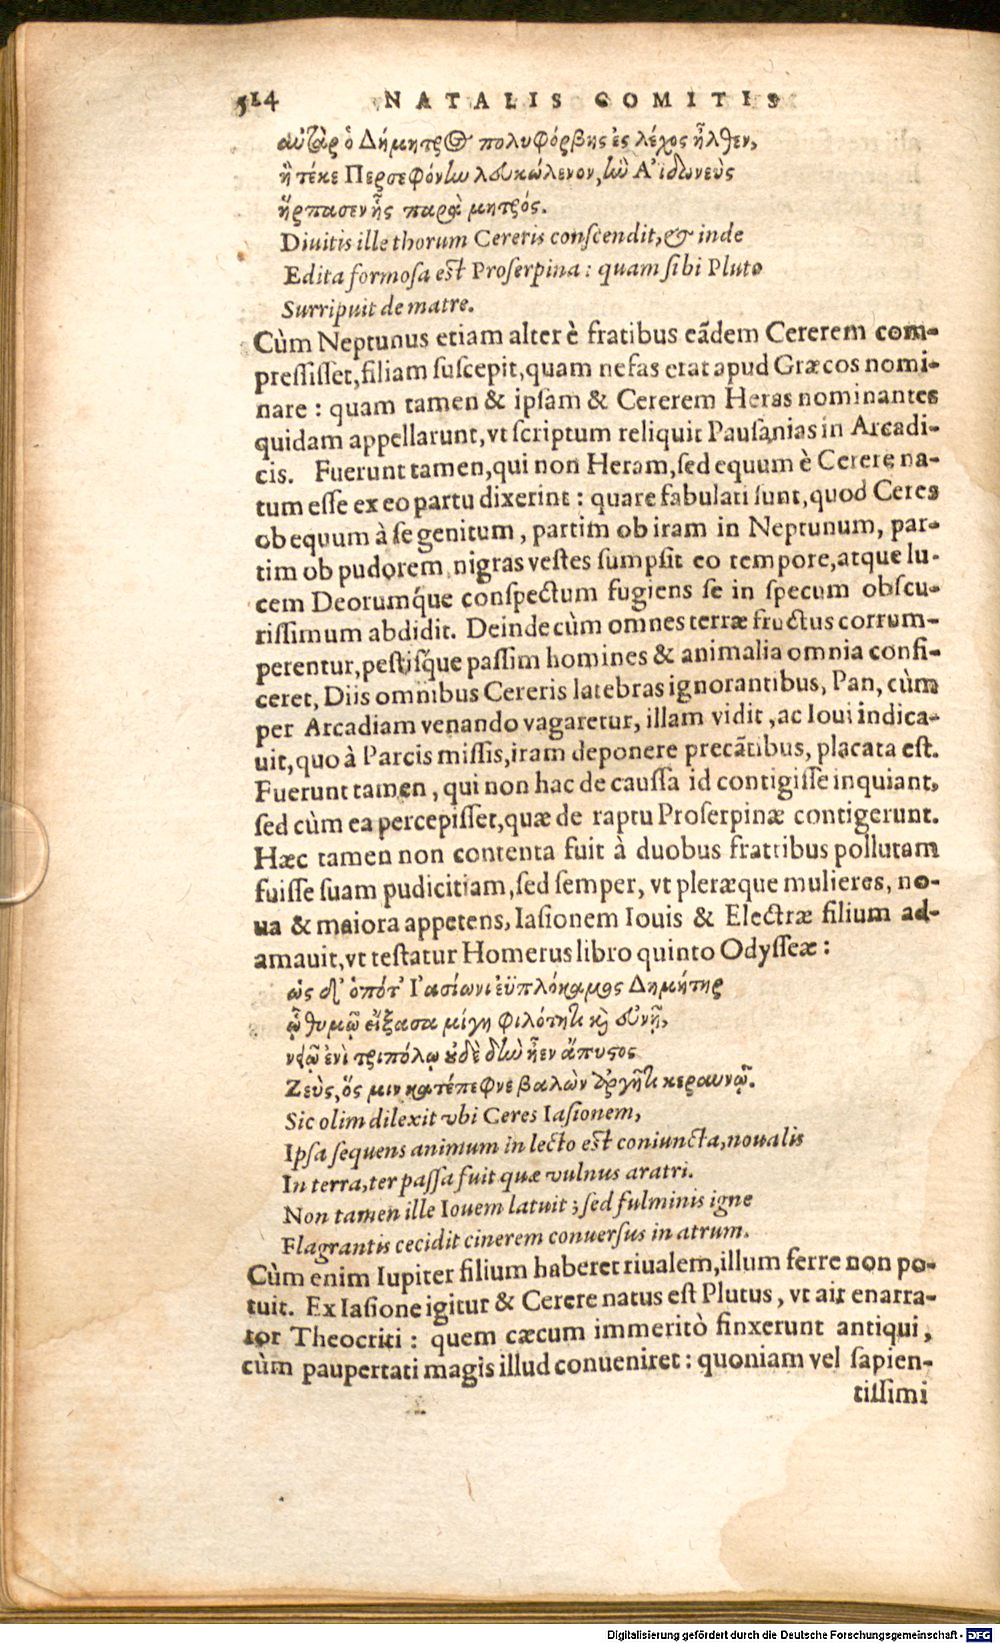 514 NATALIS COMITIS
αὐτὰρ ὁ Δήμητρος πολυφόρβης ἐς λέχος ἦλθεν,
ἣ τέκε Περσεφόνην λευκώλενον, ἣν Ἀϊδωνεὺς
ἥρπασεν ἧς παρὰ μητρός.
Diuitis ille thorum Cereris conſcendit, & inde
Edita formoſa eſt Proſerpina: quam ſibi Pluto
Surripuit de matre.
Cùm Neptunus etiam alter è fratibus eādem Cererem com-
preſſiſſet, filiam ſuſcepit, quam nefas erat apud Græcos nomi-
nare: quam tamen & ipſam & Cererem Heras nominantes
quidam appellarunt, vt ſcriptum reliquit Pauſanias in Arcadi-
cis. Fuerunt tamen, qui non Heram, ſed equum è Cerere na-
tum eſſe ex eo partu dixerint: quare fabulati ſunt, quod Ceres
ob equum à ſe genitum, partim ob iram in Neptunum, par-
tim ob pudorem nigras veſtes ſumpſit eo tempore, atque lu-
cem Deorumq́ue conſpectum fugiens ſe in ſpecum obſcu-
riſſimum abdidit. Deinde cùm omnes terræ fructus corrum-
perentur, peſtiſq́ue paſſim homines & animalia omnia confi-
ceret, Diis omnibus Cereris latebras ignorantibus, Pan, cùm
per Arcadiam venando vagaretur, illam vidit, ac Ioui indica-
uit, quo à Parcis miſſis, iram deponere precātibus, placata eſt.
Fuerunt tamen, qui non hac de cauſſa id contigiſſe inquiant,
ſed cùm ea percepiſſet, quæ de raptu Proſerpinæ contigerunt.
Hæc tamen non contenta fuit à duobus fratribus pollutam
fuiſſe ſuam pudicitiam, ſed ſemper, vt pleræque mulieres, no-
ua & maiora appetens, Iaſionem Iouis & Electræ filium ad-
amauit, vt teſtatur Homerus libro quinto Odyſſeæ:
ὡς δ' ὁπότ' Ἰασίωνι ἐϋπλόκαμος Δημήτηρ
ᾧ θυμῷ εἴξασα μίγη φιλότητι καὶ εὐνῇ,
νειῷ ἐνὶ τριπόλῳ οὐδὲ δὴν ἦεν ἄπυστος
Ζεὺς, ὅς μιν κατέπεφνε βαλὼν ἀργῆτι κεραυνῷ.
Sic olim dilexit vbi Ceres Iaſionem,
Ipſa ſequens animum in lecto eſt coniuncta, noualis
In terra, ter paſſa fuit quæ vulnus aratri.
Non tamen ille Iouem latuit; ſed fulminis igne
Flagrantis cecidit cinerem conuerſus in atrum.
Cùm enim Iupiter filium haberet riualem, illum ferre non po-
tuit. Ex Iaſione igitur & Cerere natus eſt Plutus, vt ait enarra-
tor Theocriti: quem cæcum immeritò finxerunt antiqui,
cùm paupertati magis illud conueniret: quoniam vel ſapien-
tiſſimi
Digitalisierung gefördert durch die Deutsche Forschungsgemeinschaft - DFG